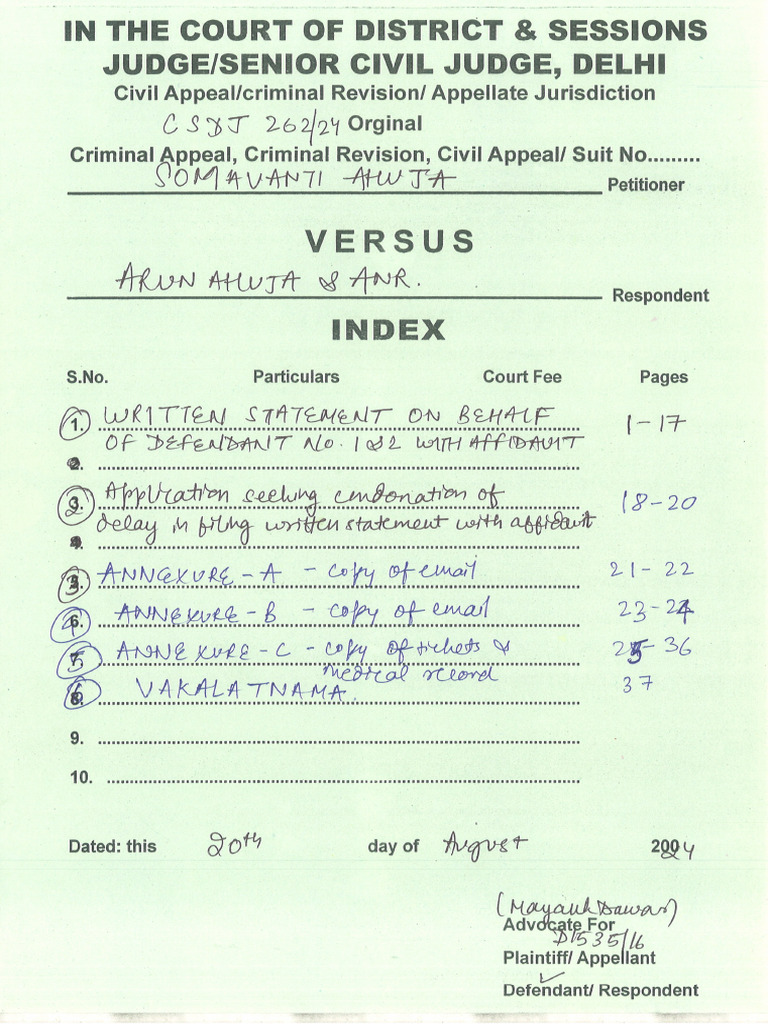 IN THE COURT OF DISTRICT & SESSIONS
JUDGE/SENIOR CIVIL JUDGE, DELHI
Civil Appeal/criminal Revision/ Appellate Jurisdiction
CSDJ 262/24 Orginal
Criminal Appeal, Criminal Revision, Civil Appeal/ Suit No.........
SOMAVANTI AHUJA Petitioner
VERSUS
ARUN AHUJA & ANR. Respondent
INDEX
S.No. Particulars Court Fee Pages
1. WRITTEN STATEMENT ON BEHALF 1-17
OF DEFENDANT NO. 1 & 2 WITH AFFIDAVIT
2. Application seeking condonation of 18-20
delay in filing written statement with affidavit
3. ANNEXURE-A - copy of email 21-22
4. ANNEXURE-B - copy of email 23-24
5. ANNEXURE-C - copy of tickets & 25-36
medical record
6. VAKALATNAMA. 37
9.
10.
Dated: this 20th day of August 2024
(Mayank Dawar)
Advocate For
D1535/16
Plaintiff/ Appellant
Defendant/ Respondent